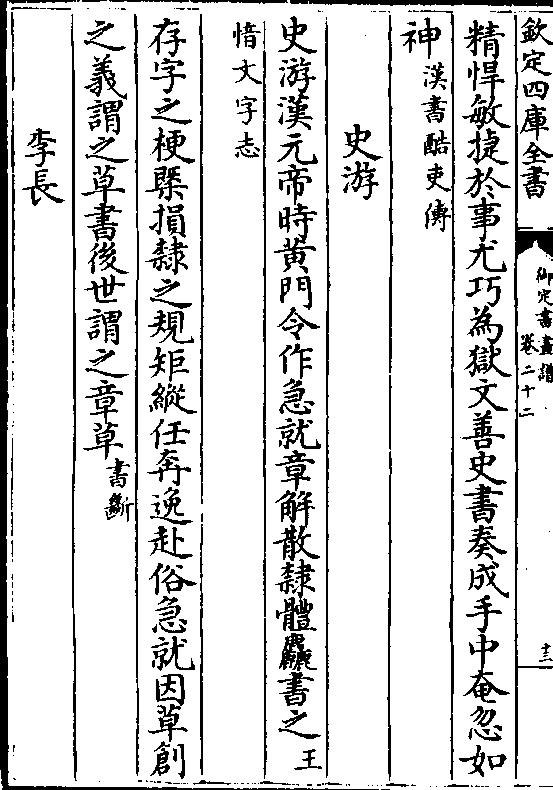 欽定四庫全書
御定書畫譜
卷二十二
十三
精悍敏捷於事尤巧為獄文善史書奏成手中奄忽如
神漢書酷吏傳
史游
史游漢元帝時黃門令作急就章解散隸體麤書之王
愔文字志
存字之梗槩損隸之規矩縱任奔逸赴俗急就因草創
之義謂之草書後世謂之章草書斷
李長